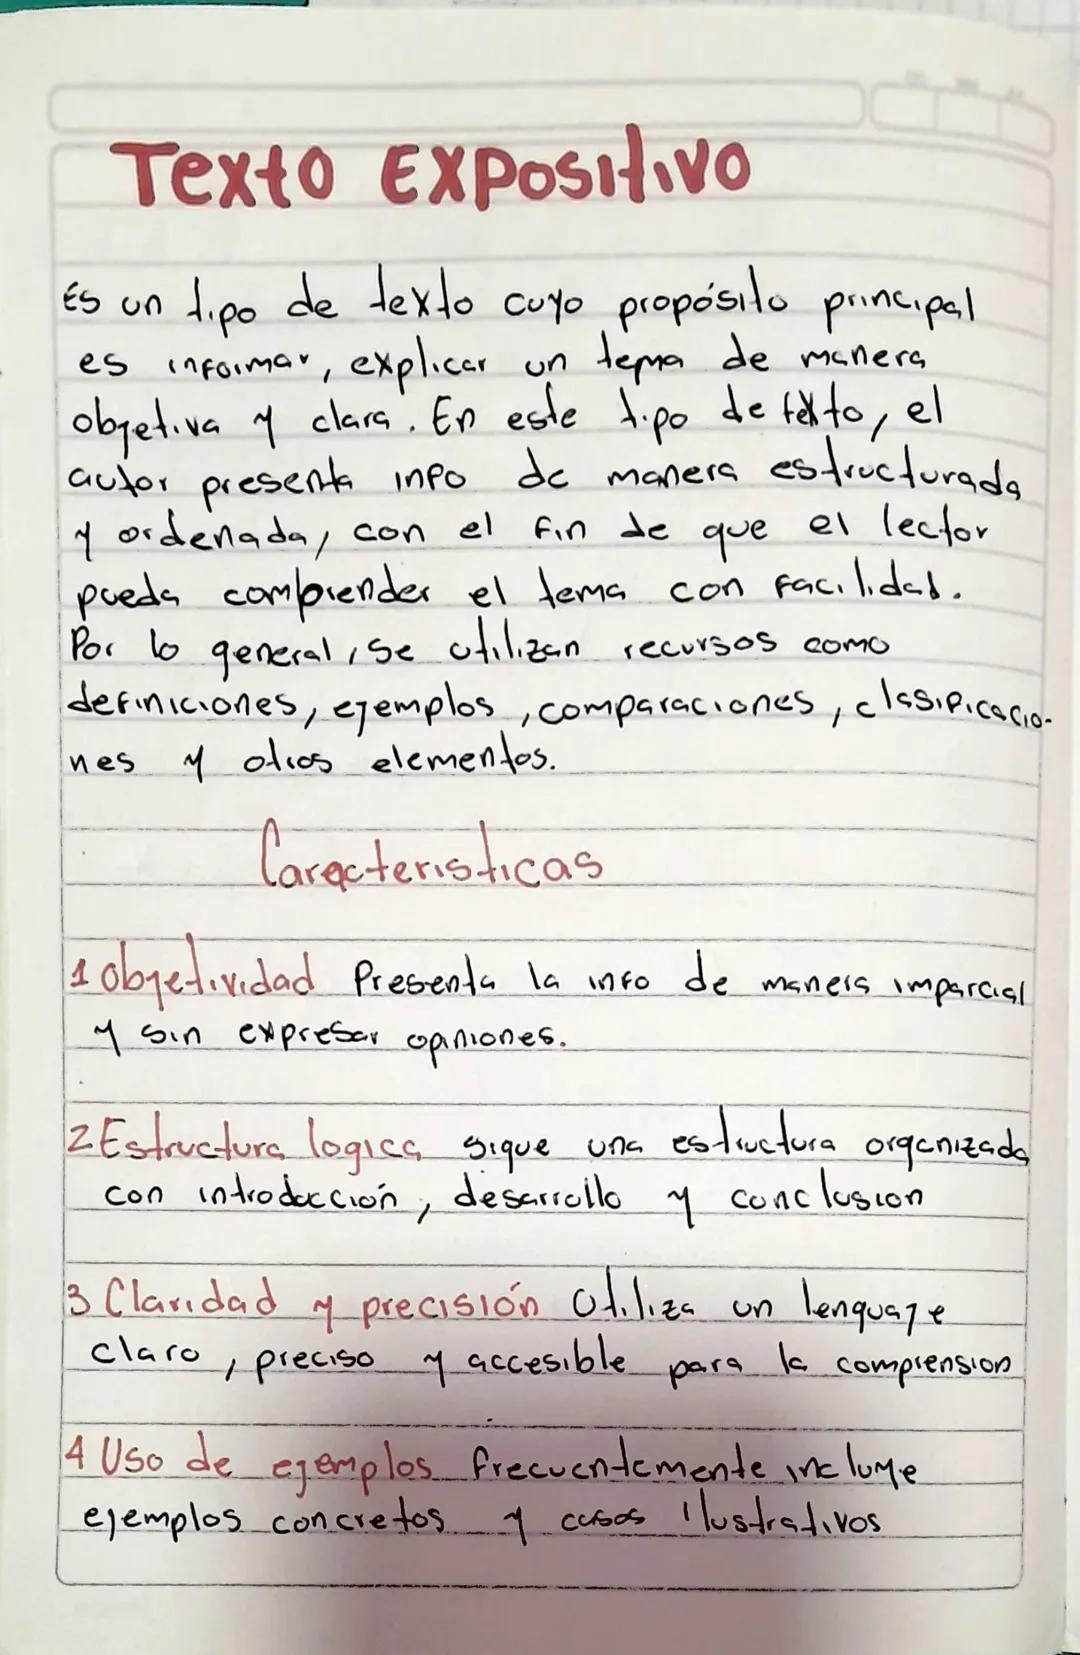 Texto Expositivo
Es un tipo de texto cuyo propósito principal
es informar, explicar un tema de manera
objetiva y clara. En este tipo de texto, el
autor presenta info de manera estructurada
y ordenada, con el fin de que el lector
pueda comprender el tema con facilidad.
Por lo general, se utilizan recursos como
definiciones, ejemplos, comparaciones, clasificacio-
nes y otros elementos.
Caracteristicas
1 Objetividad Presenta la info de manera imparcial
y sin expresar opiniones.
2 Estructura logica sigue una estructura organizada
con introducción, desarrollo y conclusion
3 Claridad y precisión Utiliza un lenguaje
claro, preciso y accesible para la comprension
4 Uso de ejemplos frecuentemente incluye
ejemplos concretos y casos ilustrativos